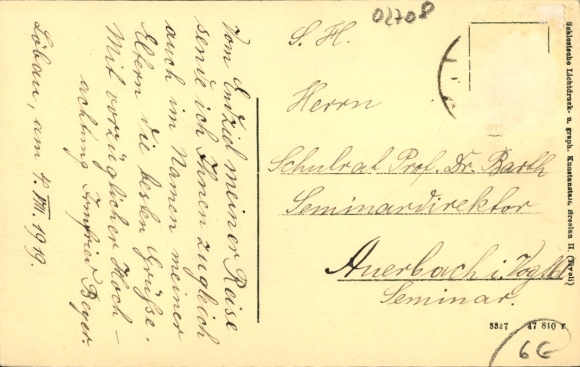 02708
S. H.
Herrn
Schulrat Prof. Dr. Barth
Seminardirektor
Auerbach i. Vogtl.
Seminar.
Vom Endziel meiner Reise
sende ich Ihnen zugleich
auch im Namen meiner
Eltern die besten Grüße.
Mit vorzüglicher Hoch-
achtung Beyer.
Löbau, am 4. VIII. 1919.
Schlesische Lichtdruck- u. graph. Kunstanstalt, Breslau II. (Tivoli)
3327 47 810 r
6G